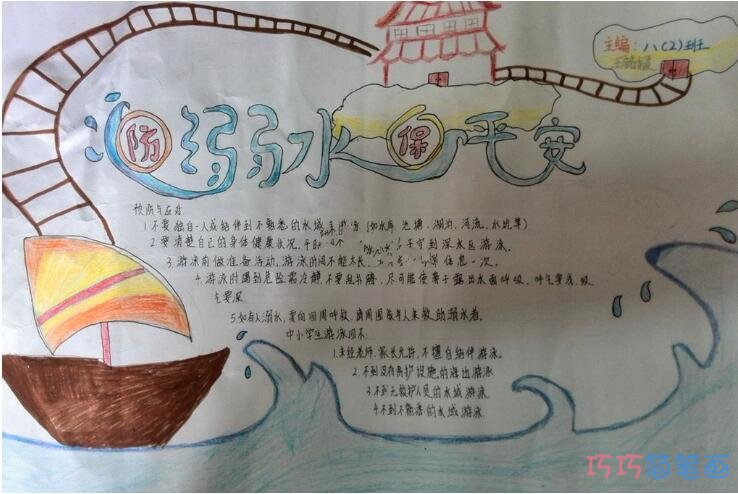 防溺水保平安
主编：八（2）班
预防与应急：
1.不要独自一人或结伴到不熟悉的水域（如水库、池塘、湖泊、河流、水坑等）
2.要清楚自己的身体健康状况，不到深水区游泳。
3.游泳前做准备活动，游泳时间不能太长，休息一次。
4.游泳时遇到危险需冷静不要乱扑腾，尽可能使鼻子露出水面呼吸，呼气要浅，吸
气要深
5.如有人溺水，要向四周呼救，请周围成年人来救助溺水者。
中小学生游泳四不：
1.未经老师、家长允许，不擅自结伴游泳。
2.不到没有防护设施的海出游泳
3.不到无救护人员的水域游泳
4.不到不熟悉的水域游泳
巧巧简笔画